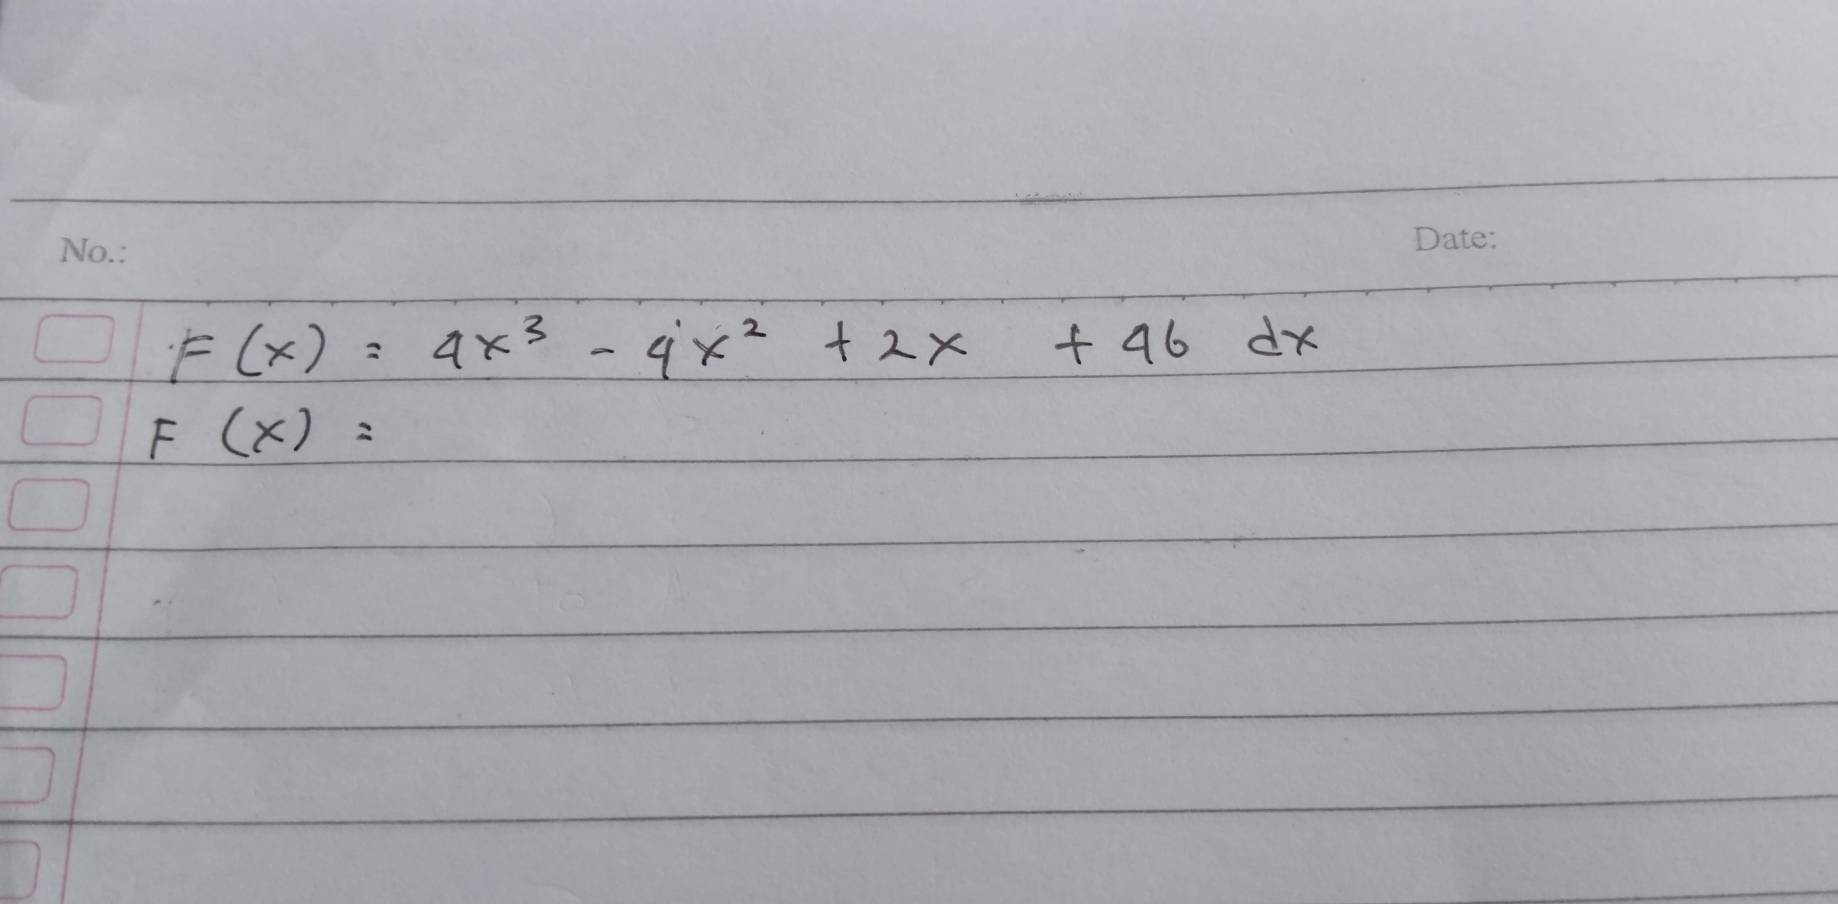 No.: Date:
F (x) = 4x³ - 4x² + 2x + 46 dx
F (x) =